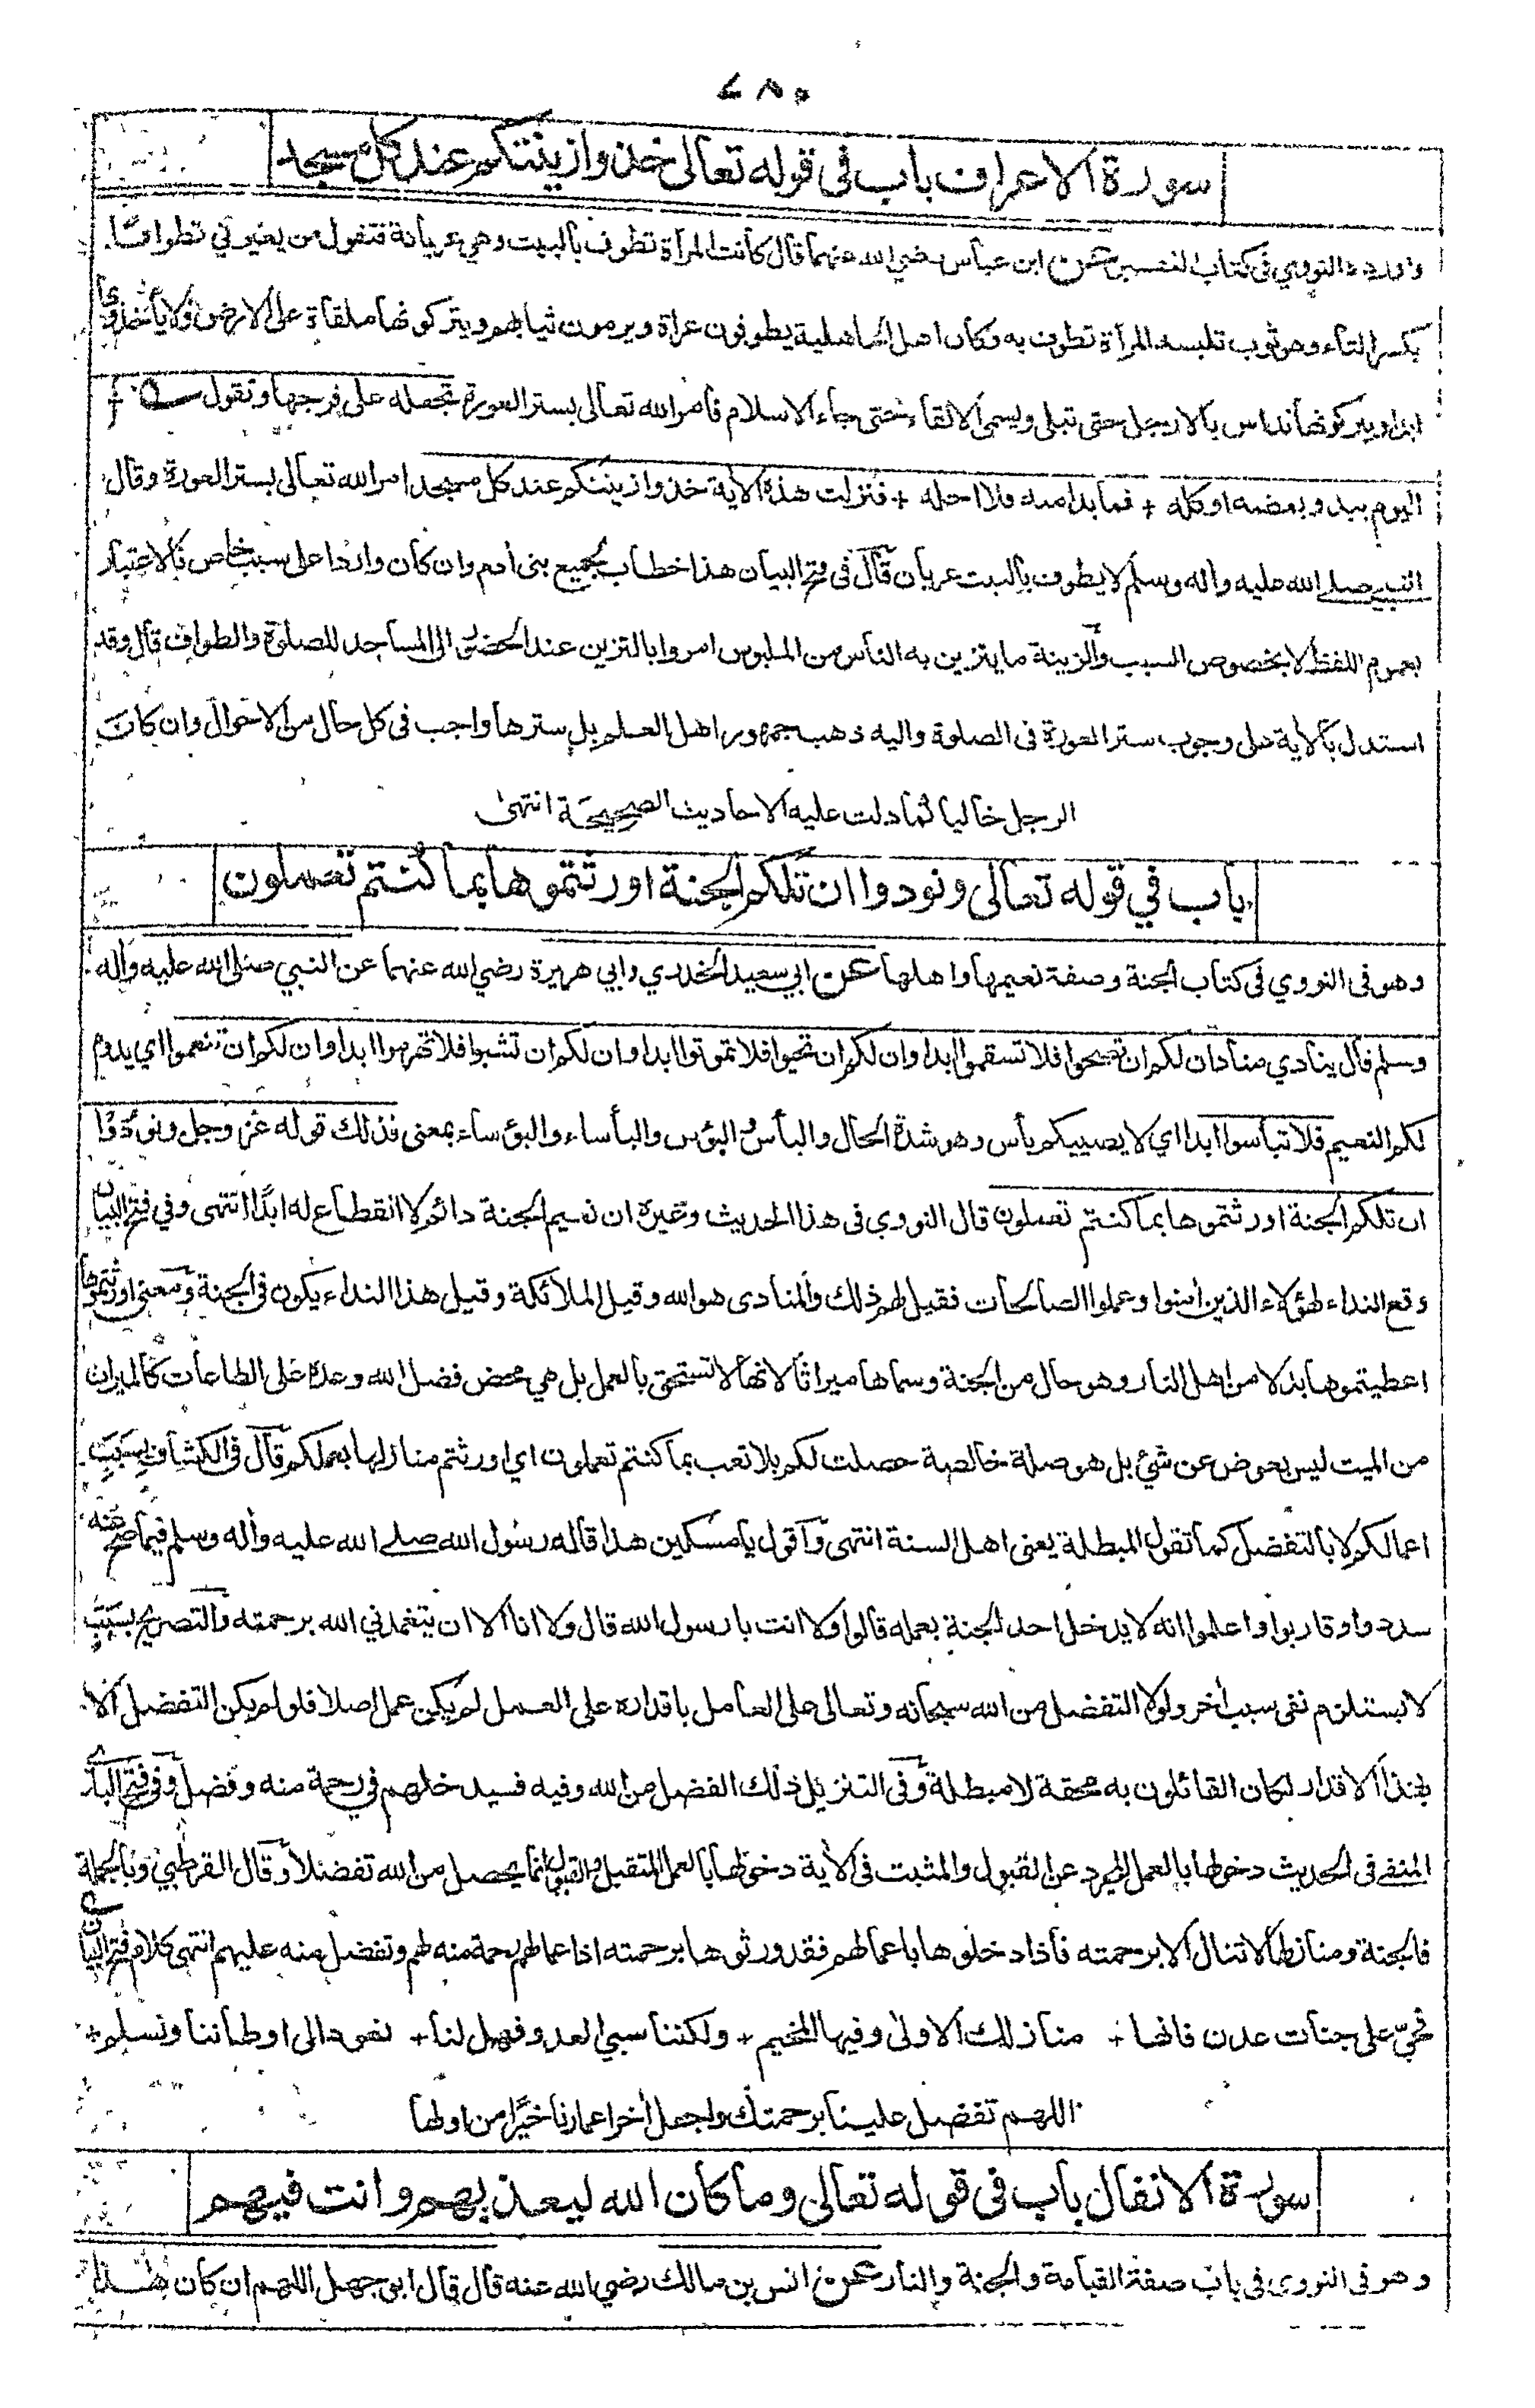 ٧٨٥
سورة الاعراف باب فى قوله تعالى خذوا زينتكم عند كل مسجد
واورده النووي فى كتاب التفسير عن ابن عباس رضي الله عنهما قال كانت المرأة تطوف بالبيت وهي عريانة فتقول من يعيرني تطوافا
بكسر التاء وهو ثوب تلبسه المرأة تطوف به وكان اهل الجاهلية يطوفون عراة ويرمون ثيابهم ويتركونها ملقاة على الارض ولا يأخذونها
ابدا ويتركونها تداس بالارجل حتى تبلى ويسمى الالقاء حتى جاء الاسلام فأمر الله تعالى بستر العورة تجعله على فرجها وتقول
اليوم يبدو بعضه او كله + فما بدا منه فلا احله + فنزلت هذه الاية خذوا زينتكم عند كل مسجد امر الله تعالى بستر العورة وقال
النبي صلى الله عليه واله وسلم لا يطوف بالبيت عريان قال فى فتح البيان هذا خطاب لجميع بنى ادم وان كان واردا على سبب خاص فالاعتبار
بعموم اللفظ لا بخصوص السبب والزينة ما يتزين به الناس من الملبوس امروا بالتزين عند الحضور الى المساجد للصلوة والطواف قال وقد
استدل بالاية على وجوب ستر العورة فى الصلوة واليه ذهب جمهور اهل العلم بل سترها واجب فى كل حال من الاحوال وان كان
الرجل خاليا كما دلت عليه الاحاديث الصحيحة انتهى
باب في قوله تعالى ونودوا ان تلكم الجنة اورثتموها بما كنتم تعملون
وهو فى النووي فى كتاب الجنة وصفة نعيمها واهلها عن ابي سعيد الخدري وابي هريرة رضي الله عنهما عن النبي صلى الله عليه واله
وسلم قال ينادي مناد ان لكم ان تصحوا فلا تسقموا ابدا وان لكم ان تحيوا فلا تموتوا ابدا وان لكم ان تشبوا فلا تهرموا ابدا وان لكم ان تنعموا اي يدوم
لكم النعيم فلا تبأسوا ابدا اي لا يصيبكم بأس وهو شدة الحال والبأس والبؤس والبأساء والبؤساء بمعنى فذلك قوله عز وجل ونودوا
ان تلكم الجنة اورثتموها بما كنتم تعملون قال النووي فى هذا الحديث وغيره ان نعيم الجنة دائم لا انقطاع له ابدا انتهى وفي فتح البيان
وقع النداء لهؤلاء الذين امنوا وعملوا الصالحات فقيل لهم ذلك والمنادى هو الله وقيل الملائكة وقيل هذا النداء يكون فى الجنة ومعنى اورثتموها
اعطيتموها بدلا من اهل النار وهو حال من الجنة وسماها ميراثا لانها لا تستحق بالعمل بل هي محض فضل الله وعده على الطاعات كالميراث
من الميت ليس بعوض عن شئ بل هو صلة خالصة حصلت لكم بلا تعب بما كنتم تعملون اي اورثتم منازلها بعملكم قال فى الكشاف بسبب
اعمالكم لا بالتفضل كما تقول المبطلة يعنى اهل السنة انتهى واقول يا مسكين هذا قاله رسول الله صلى الله عليه واله وسلم فيما صح عنه
سددوا وقاربوا واعلموا انه لا يدخل احد الجنة بعمله قالوا ولا انت يا رسول الله قال ولا انا الا ان يتغمدني الله برحمته والتصريح بسبب
لا يستلزم نفى سبب اخر ولولا التفضل من الله سبحانه وتعالى على العامل باقداره على العمل لم يكن عمل اصلا فلو لم يكن التفضل الا
بهذا الاقدار لكان القائلون به محقة لا مبطلة وفى التنزيل ذلك الفضل من الله وفيه فسيدخلهم في رحمة منه وفضل وفي فتح الباري
المنفي فى الحديث دخولها بالعمل المجرد عن القبول والمثبت فى الاية دخولها بالعمل المتقبل والقبول انما يحصل من الله تفضلا وقال القرطبي وبالجملة
فالجنة ومنازلها لا تنال الا برحمته فاذا دخلوها باعمالهم فقد ورثوها برحمته اذ اعمالهم رحمة منه لهم وتفضل منه عليهم انتهى كلام فتح البيان
فحي على جنات عدن فانها + منازلك الاولى وفيها المخيم + ولكننا سبي العدو فهل لنا + نعود الى اوطاننا ونسلم +
اللهم تفضل علينا برحمتك واجعل اخر اعمارنا خيرا من اولها
سورة الانفال باب فى قوله تعالى وما كان الله ليعذبهم وانت فيهم
وهو فى النووى فى باب صفة القيامة والجنة والنار عن انس بن مالك رضي الله عنه قال قال ابو جهل اللهم ان كان هذا